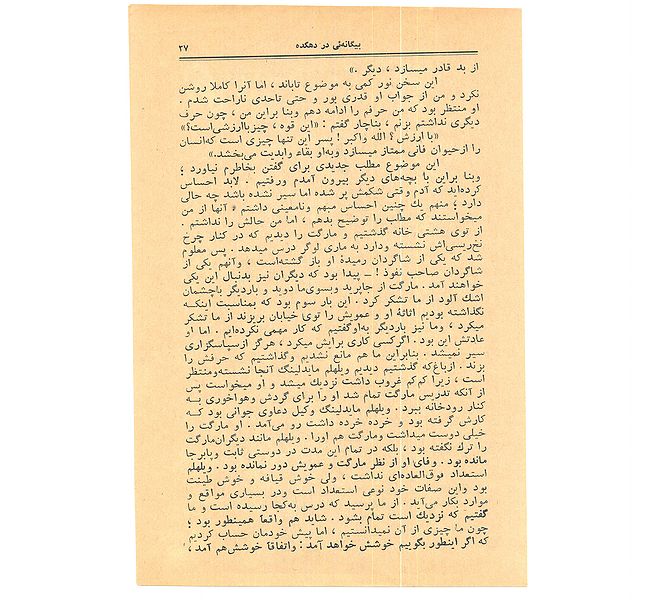 بیگانه‌ئی در دهکده
۳۷
از بد قادر میسازد ، دیگر .»
این سخن نور کمی به موضوع تاباند ، اما آنرا کاملا روشن
نکرد و من از جواب او قدری بور و حتی تاحدی ناراحت شدم .
او منتظر بود که من حرفم را ادامه دهم وبنا براین من ، چون حرف
دیگری نداشتم بزنم ، بناچار گفتم : «این قوه ، چیز باارزشی است؟»
«با ارزش ؟ الله واکبر ! پسر این تنها چیزی است که‌انسان
را ازحیوان فانی ممتاز میسازد وبه‌او بقاء وابدیت می‌بخشد.»
این موضوع مطلب جدیدی برای گفتن بخاطرم نیاورد ؛
وبنا براین با بچه‌های دیگر بیرون آمدم ورفتیم . لابد احساس
کرده‌اید که آدم وقتی شکمش پر شده اما سیر نشده باشد چه حالی
دارد ؛ منهم یك چنین احساس مبهم ونامعینی داشتم . آنها از من
میخواستند که مطلب را توضیح بدهم ، اما من حالش را نداشتم .
از توی هشتی خانه گذشتیم و مارگت را دیدیم که در کنار چرخ
نخ‌ریسی‌اش نشسته ودارد به ماری لوگر درس میدهد . پس معلوم
شد که یکی از شاگردان رمیدهٔ او باز گشته‌است ، وآنهم یکی از
شاگردان صاحب نفوذ ! ــ پیدا بود که دیگران نیز بدنبال این یکی
خواهند آمد . مارگت از جاپرید وبسوی‌ما دوید و باردیگر باچشمان
اشك آلود از ما تشکر کرد . این بار سوم بود که بمناسبت اینکـه
نگذاشته بودیم اثاثهٔ او و عمویش را توی خیابان بریزند از ما تشکر
میکرد ، وما نیز باردیگر به‌اوگفتیم که کار مهمی نکرده‌ایم . اما او
عادتش این بود . اگرکسی کاری برایش میکرد ، هرگز ازسپاسگزاری
سیر نمیشد . بنابراین ما هم مانع نشدیم وگذاشتیم که حرفش را
بزند . ازباغ‌که گذشتیم دیدیم ویلهلم مایدلینگ آنجا نشسته‌ومنتظر
است ، زیرا کم‌کم غروب داشت نزدیك میشد و او میخواست پس
از آنکه تدریس مارگت تمام شد او را برای گردش وهواخوری بـه
کنار رودخانه ببرد . ویلهلم مایدلینگ وکیل دعاوی جوانی بود کـه
کارش گرفته بود و خرده خرده داشت رو می‌آمد . او مارگت را
خیلی دوست میداشت ومارگت هم اورا . ویلهلم مانند دیگران‌مارگت
را ترك نگفته بود ، بلکه در تمام این مدت در دوستی ثابت وپابرجا
مانده بود . وفای او از نظر مارگت و عمویش دور نمانده بود . ویلهلم
استعداد فوق‌العاده‌ای نداشت ، ولی خوش قیافه و خوش طینت
بود واین صفات خود نوعی استعداد است ودر بسیاری مواقع و
موارد بکار می‌آید . از ما پرسید که درس به‌کجا رسیده است و ما
گفتیم که نزدیك است تمام بشود . شاید هم واقعاً همینطور بود ؛
چون ما چیزی از آن نمیدانستیم ، اما پیش خودمان حساب کردیم
که اگر اینطور بگوییم خوشش خواهد آمد : واتفاقاً خوشش‌هم آمد ،